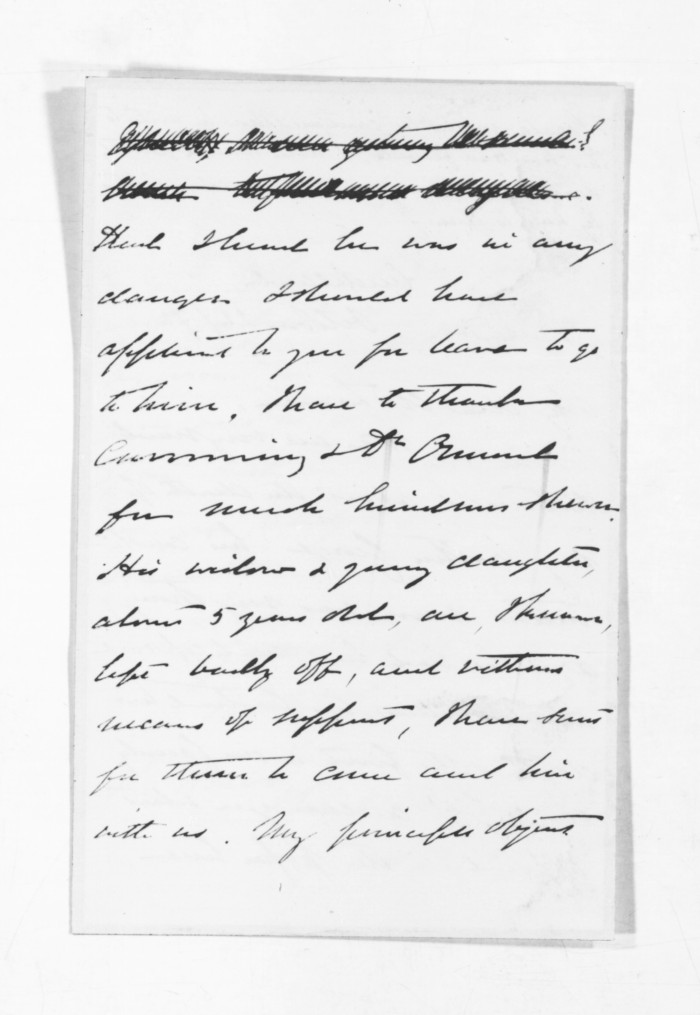 Had I heard he was in any
danger I should have
applied to you for leave to go
to him. I have to thank
Cumming & Dr
for much kindness shewn.
His widow & young daughter,
about 5 years old, are, I know,
left badly off, and without
means of support, I have sent
for them to come and live
with us. My principle object